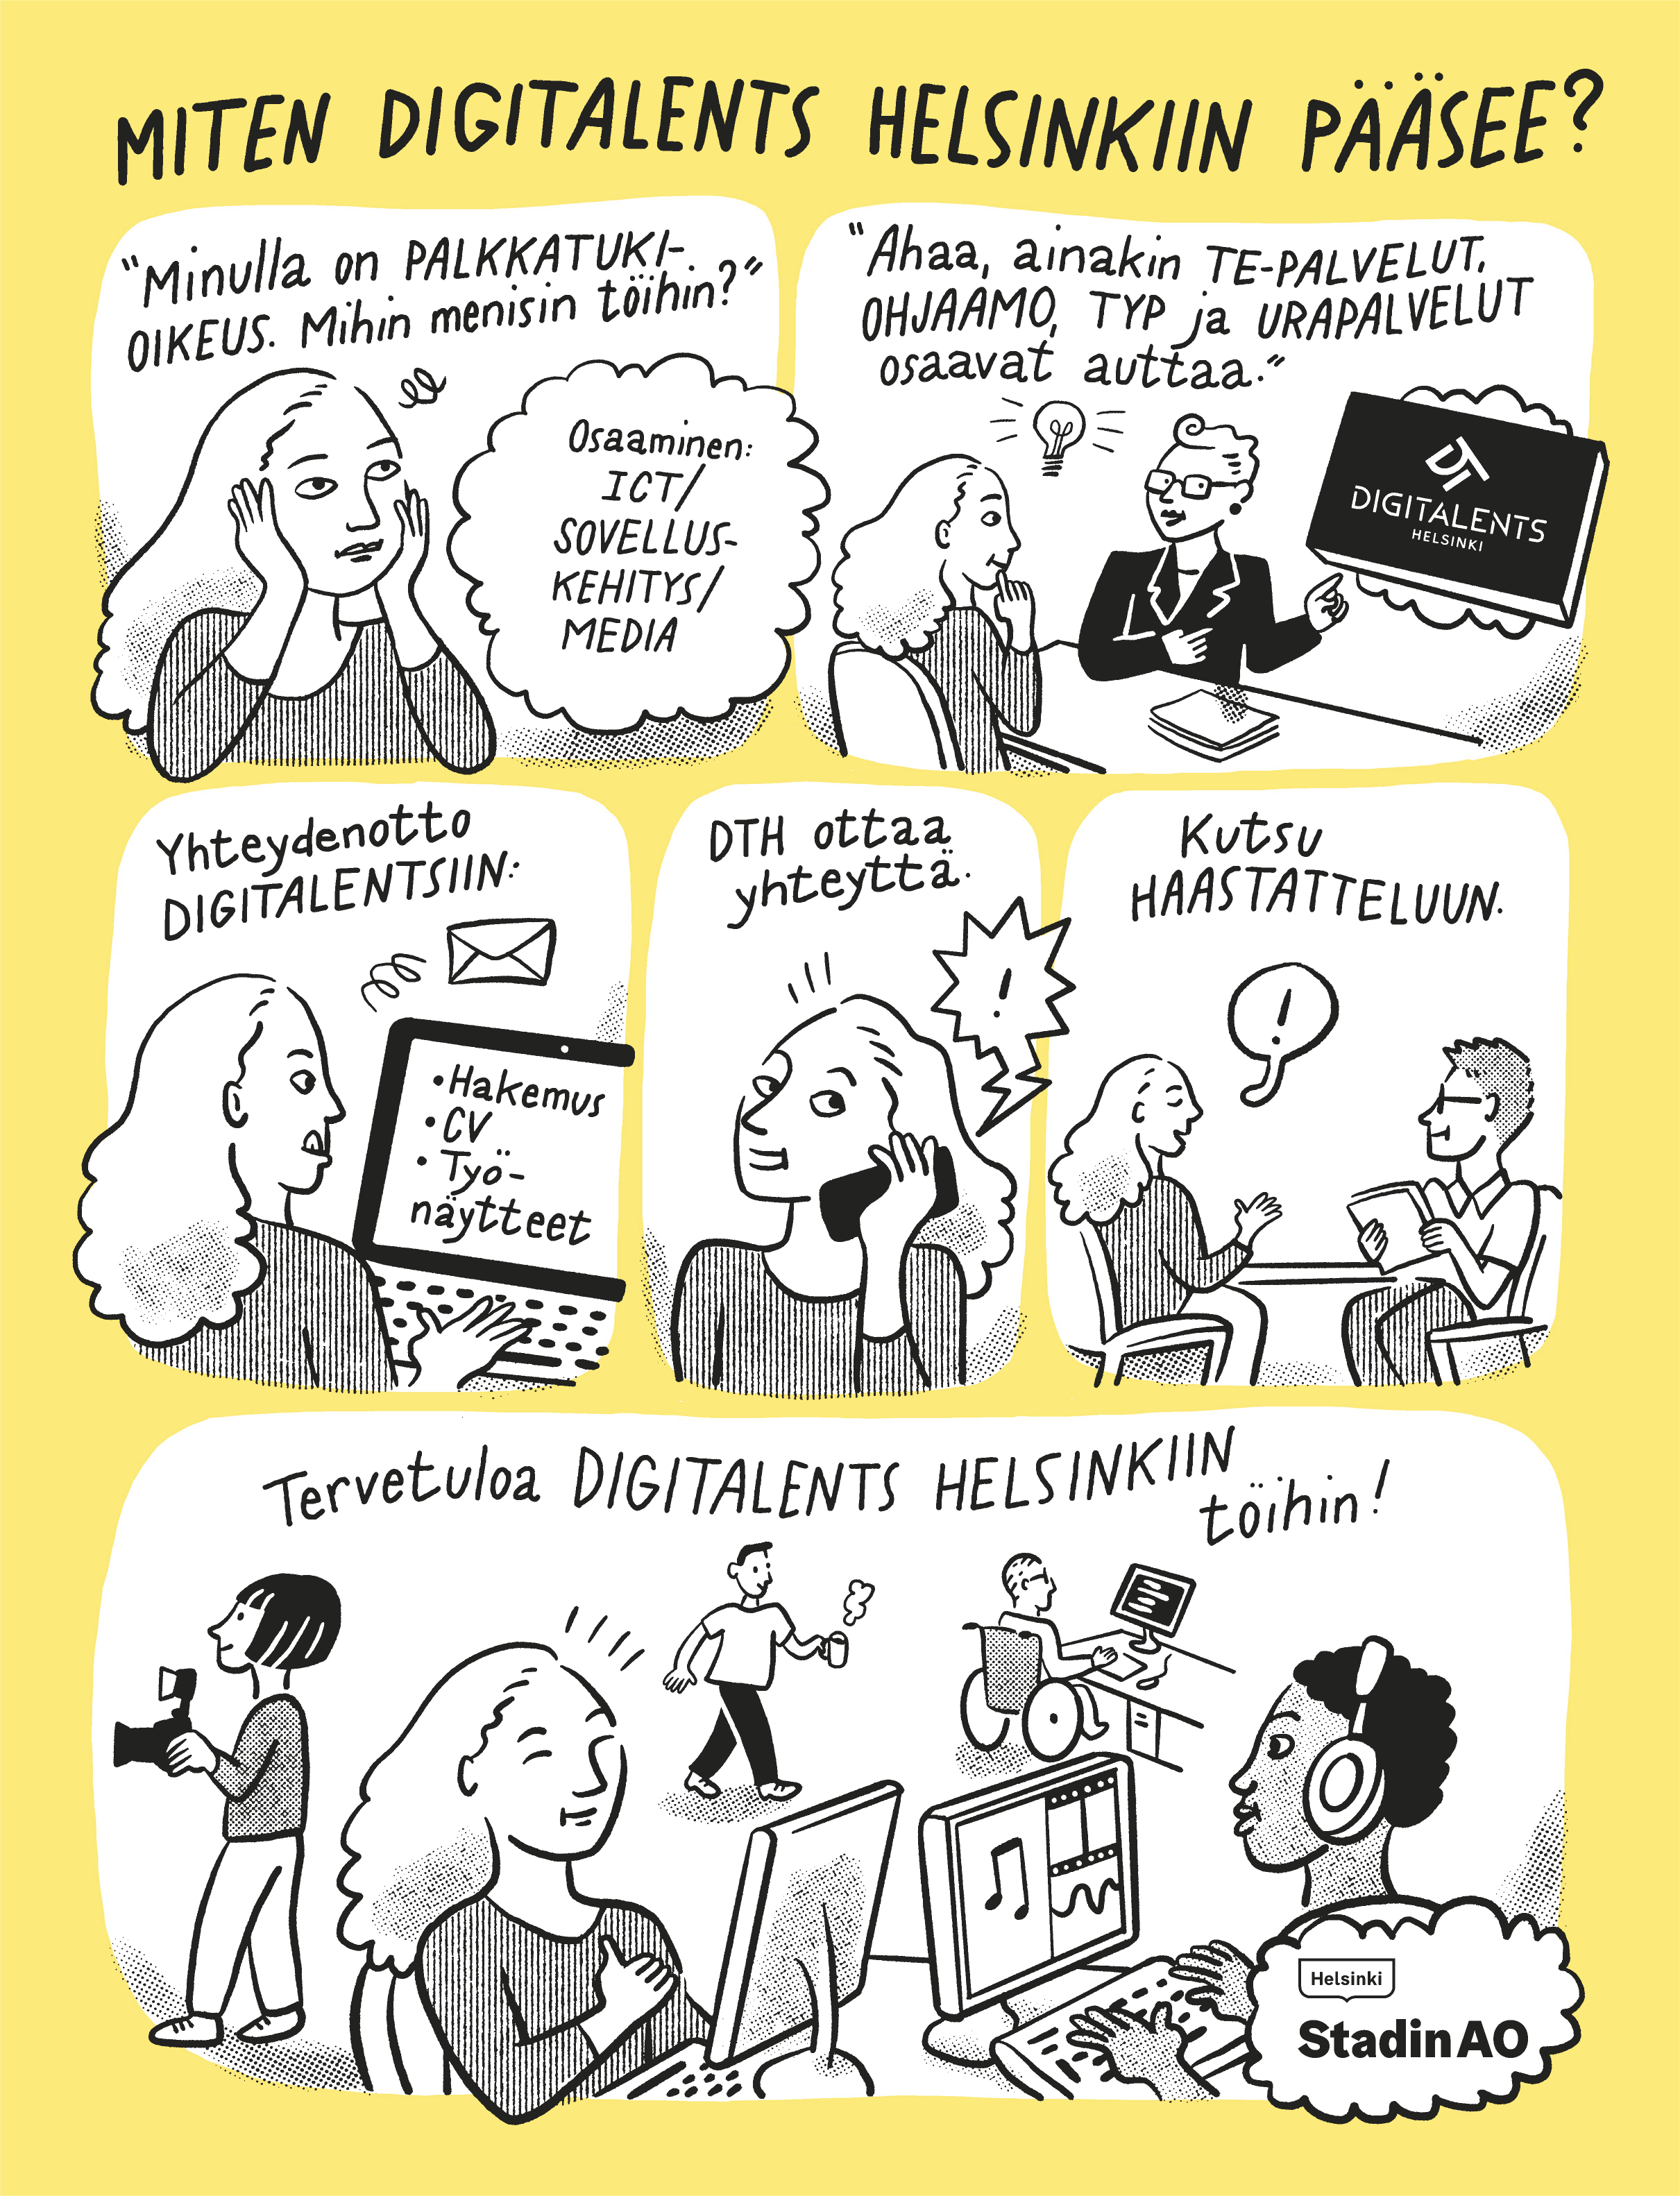 MITEN DIGITALENTS HELSINKIIN PÄÄSEE?
"Minulla on PALKKATUKI-
OIKEUS. Mihin menisin töihin?"
Osaaminen:
ICT/
SOVELLUS-
KEHITYS/
MEDIA
"Ahaa, ainakin TE-PALVELUT,
OHJAAMO, TYP ja URAPALVELUT
osaavat auttaa."
DIGITALENTS
HELSINKI
Yhteydenotto
DIGITALENTSIIN:
•Hakemus
•CV
•Työ-
näytteet
DTH ottaa
yhteyttä.
!
Kutsu
HAASTATTELUUN.
!
Tervetuloa DIGITALENTS HELSINKIIN
töihin!
Helsinki
StadinAO